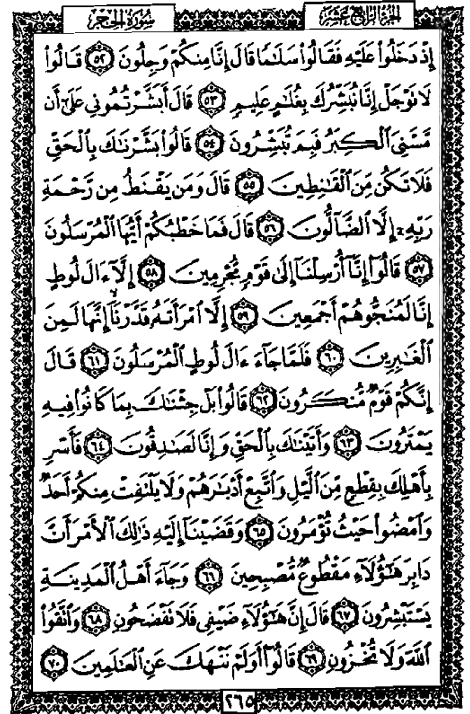 الجزء الرابع عشر
سُورَةُ الحِجْرِ
إِذْ دَخَلُوا۟ عَلَيْهِ فَقَالُوا۟ سَلَٰمًا قَالَ إِنَّا مِنكُمْ وَجِلُونَ ٥٢ قَالُوا۟
لَا تَوْجَلْ إِنَّا نُبَشِّرُكَ بِغُلَٰمٍ عَلِيمٍ ٥٣ قَالَ أَبَشَّرْتُمُونِى عَلَىٰٓ أَن
مَّسَّنِىَ ٱلْكِبَرُ فَبِمَ تُبَشِّرُونَ ٥٤ قَالُوا۟ بَشَّرْنَٰكَ بِٱلْحَقِّ
فَلَا تَكُن مِّنَ ٱلْقَٰنِطِينَ ٥٥ قَالَ وَمَن يَقْنَطُ مِن رَّحْمَةِ
رَبِّهِۦٓ إِلَّا ٱلضَّآلُّونَ ٥٦ قَالَ فَمَا خَطْبُكُمْ أَيُّهَا ٱلْمُرْسَلُونَ
٥٧ قَالُوٓا۟ إِنَّآ أُرْسِلْنَآ إِلَىٰ قَوْمٍ مُّجْرِمِينَ ٥٨ إِلَّآ ءَالَ لُوطٍ
إِنَّا لَمُنَجُّوهُمْ أَجْمَعِينَ ٥٩ إِلَّا ٱمْرَأَتَهُۥ قَدَّرْنَآ إِنَّهَا لَمِنَ
ٱلْغَٰبِرِينَ ٦٠ فَلَمَّا جَآءَ ءَالَ لُوطٍ ٱلْمُرْسَلُونَ ٦١ قَالَ
إِنَّكُمْ قَوْمٌ مُّنكَرُونَ ٦٢ قَالُوا۟ بَلْ جِئْنَٰكَ بِمَا كَانُوا۟ فِيهِ
يَمْتَرُونَ ٦٣ وَأَتَيْنَٰكَ بِٱلْحَقِّ وَإِنَّا لَصَٰدِقُونَ ٦٤ فَأَسْرِ
بِأَهْلِكَ بِقِطْعٍ مِّنَ ٱلَّيْلِ وَٱتَّبِعْ أَدْبَٰرَهُمْ وَلَا يَلْتَفِتْ مِنكُمْ أَحَدٌ
وَٱمْضُوا۟ حَيْثُ تُؤْمَرُونَ ٦٥ وَقَضَيْنَآ إِلَيْهِ ذَٰلِكَ ٱلْأَمْرَ أَنَّ
دَابِرَ هَٰٓؤُلَآءِ مَقْطُوعٌ مُّصْبِحِينَ ٦٦ وَجَآءَ أَهْلُ ٱلْمَدِينَةِ
يَسْتَبْشِرُونَ ٦٧ قَالَ إِنَّ هَٰٓؤُلَآءِ ضَيْفِى فَلَا تَفْضَحُونِ ٦٨ وَٱتَّقُوا۟
ٱللَّهَ وَلَا تُخْزُونِ ٦٩ قَالُوٓا۟ أَوَلَمْ نَنْهَكَ عَنِ ٱلْعَٰلَمِينَ ٧٠
٢٦٥